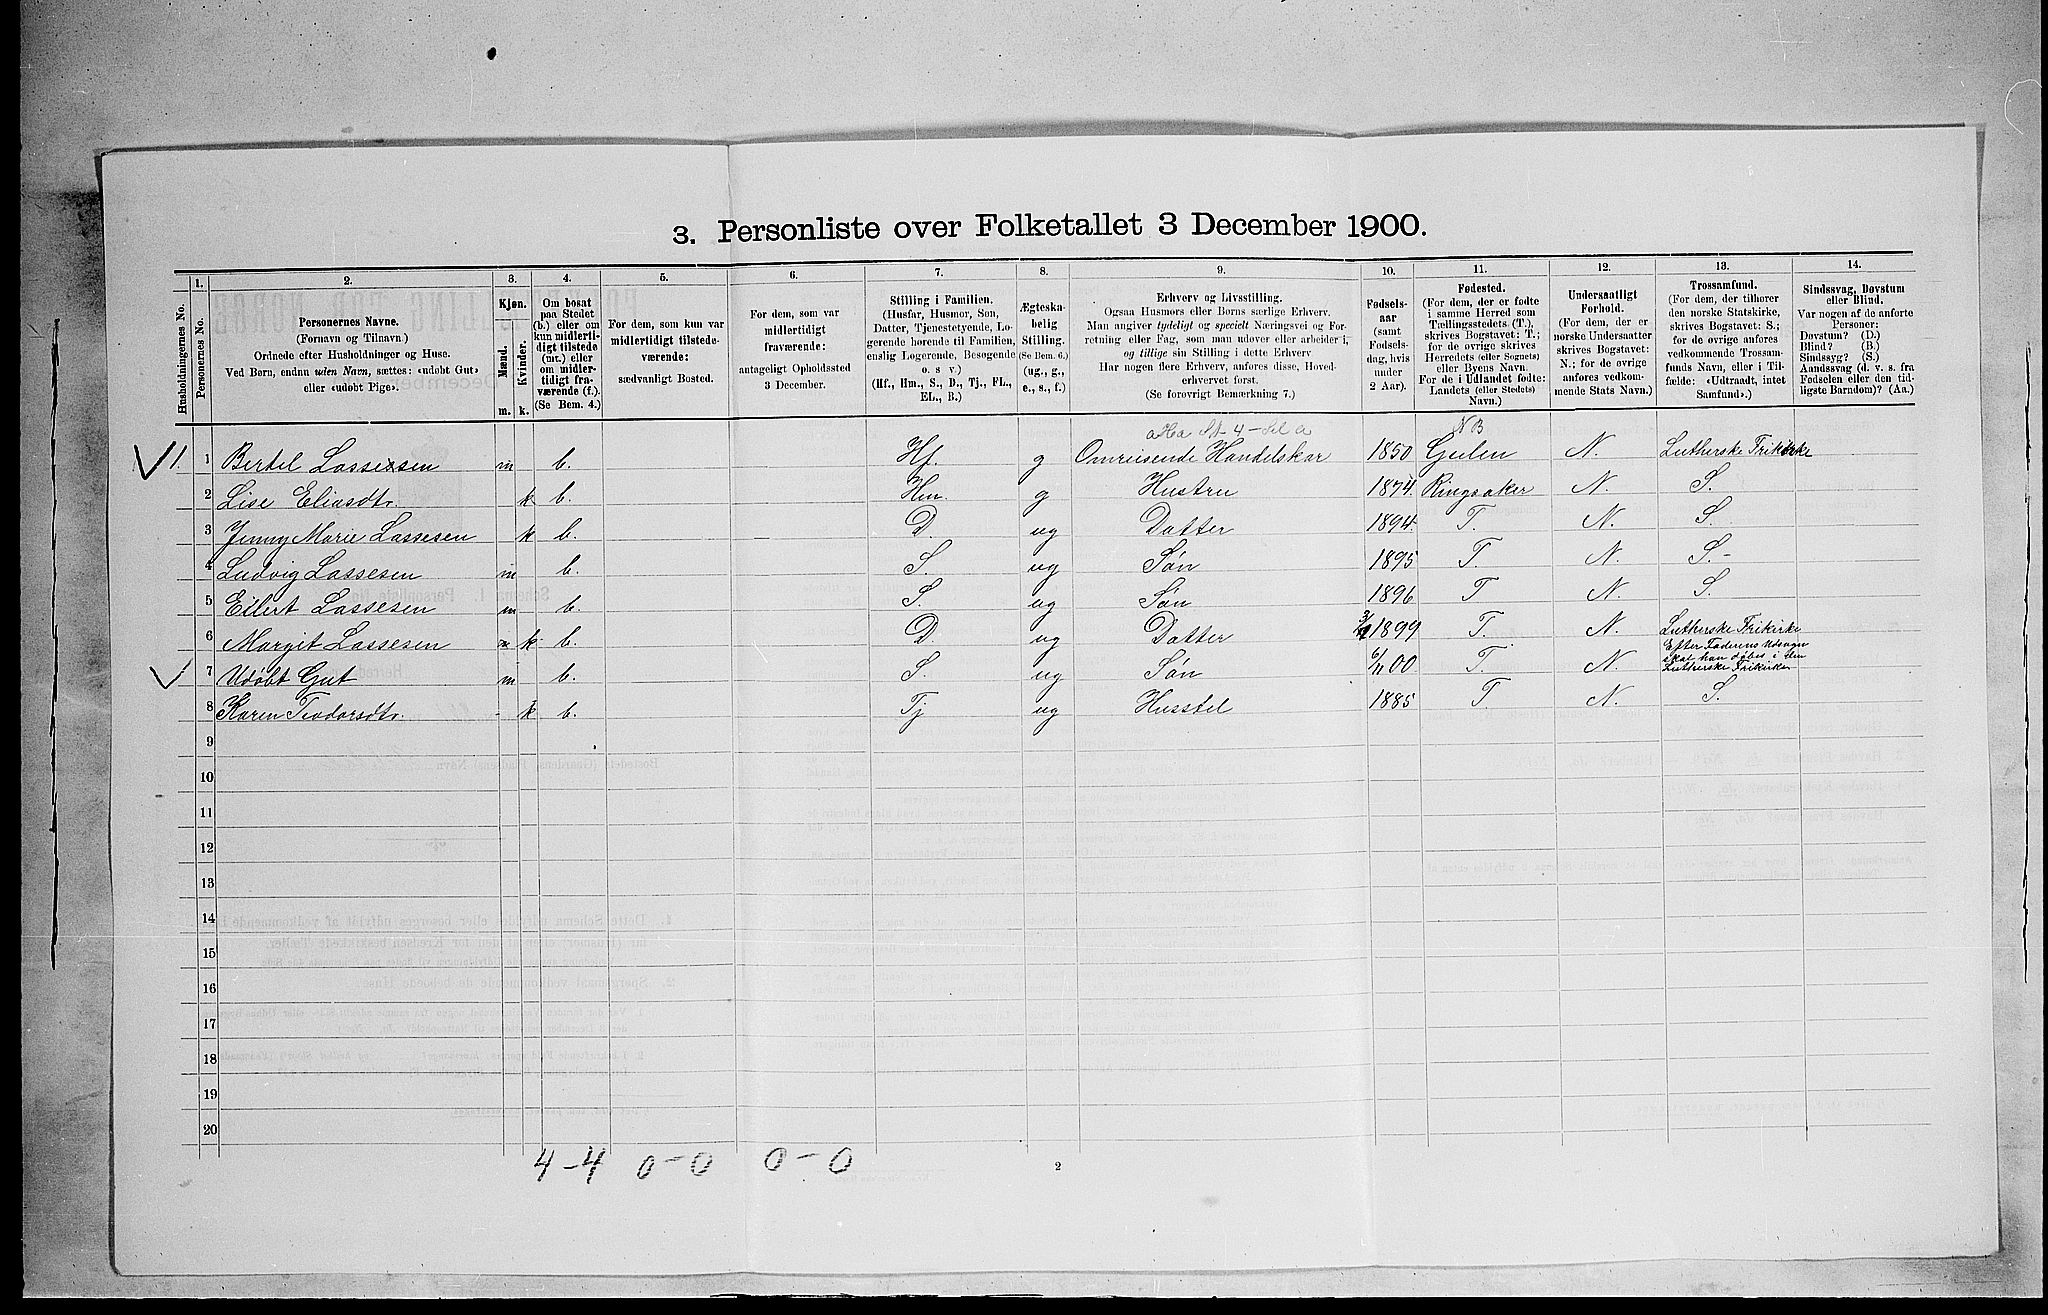 3. Personliste over Folketallet 3 December 1900.
1. 2. 3. 4. 5. 6. 7. 8. 9. 10. 11. 12. 13. 14.
Husholdningernes No.
Personernes No.
Personernes Navne.
(Fornavn og Tilnavn.)
Ordnede efter Husholdninger og Huse.
Ved Børn, endnu uden Navn, sættes: «udøbt Gut»
eller «udøbt Pige».
Kjøn.
Mænd.
Kvinder.
m. k.
Om bosat
paa Stedet
(b.) eller om
kun midlerti-
digt tilstede
(mt.) eller
om midler-
tidigt fra-
værende (f.).
(Se Bem. 4.)
For dem, som kun var
midlertidigt tilstede-
værende:
sædvanligt Bosted.
For dem, som var
midlertidigt
fraværende:
antageligt Opholdssted
3 December.
Stilling i Familien.
(Husfar, Husmor, Søn,
Datter, Tjenestetyende, Lo-
gerende hørende til Familien,
enslig Logerende, Besøgende
o. s. v.)
(Hf., Hm., S., D., Tj., FL.,
EL., B.)
Ægteska-
belig
Stilling.
(Se Bem. 6.)
(ug., g.,
e., s., f.)
Erhverv og Livsstilling.
Ogsaa Husmors eller Børns særlige Erhverv.
Man angiver tydeligt og specielt Næringsvei og For-
retning eller Fag, som man udøver eller arbeider i,
og tillige sin Stilling i dette Erhverv.
Har nogen flere Erhverv, anføres disse, Hoved-
erhvervet først.
(Se forøvrigt Bemærkning 7.)
Fødsels-
aar
(samt
Fødsels-
dag, hvis
under
2 Aar).
Fødested.
(For dem, der er fødte
i samme Herred som
Tællingsstedets (T.),
skrives Bogstavet: T.;
for de øvrige skrives
Herredets (eller Sognets)
eller Byens Navn.
For de i Udlandet fødte:
Landets (eller Stedets)
Navn.)
Undersaatligt
Forhold.
(For dem, der er
norske Undersaatter
skrives Bogstavet:
N.; for de øvrige
anføres vedkom-
mende Stats Navn.)
Trossamfund.
(For dem, der tilhører
den norske Statskirke,
skrives Bogstavet: S.;
for de øvrige anføres
vedkommende Trossam-
funds Navn, eller i Til-
fælde: «Udtraadt, intet
Samfund».)
Sindssvag, Døvstum
eller Blind.
Var nogen af de anførte
Personer:
Døvstum? (D.)
Blind? (B.)
Sindssyg? (S.)
Aandssvag (d. v. s. fra
Fødselen eller den tid-
ligste Barndom)? (Aa.)
NB
1. 1 Bertel Lassesen m b. Hf. g Omreisende Handelskar 1850 Gulen N. Lutherske Frikirke
2 Lise Eliasdtr. k b. Hm. g Hustru 1874. Ringsaker N. S.
3 Jenny Marie Lassesen k b. D. ug Datter 1894. T. N. S.
4 Ludvig Lassesen m b. S. ug Søn 1895 T. N. S.
5 Eilert Lassesen m b. S. ug Søn 1896 T N. S.
6 Margit Lassesen k b. D. ug Datter 1899 T. N. Lutherske Frikirke
7 Udøbt Gut m b. S. ug Søn 6/11 00 T. N Efter Faderens Udsagn
skal han døbes i den
Lutherske Frikirke
8 Karen Teodorsdtr. k b. Tj ug Husstel 1885 T N. S.
9
10
11
12
13
14
15
16
17
18
19
20
4-4 0-0 0-0
2